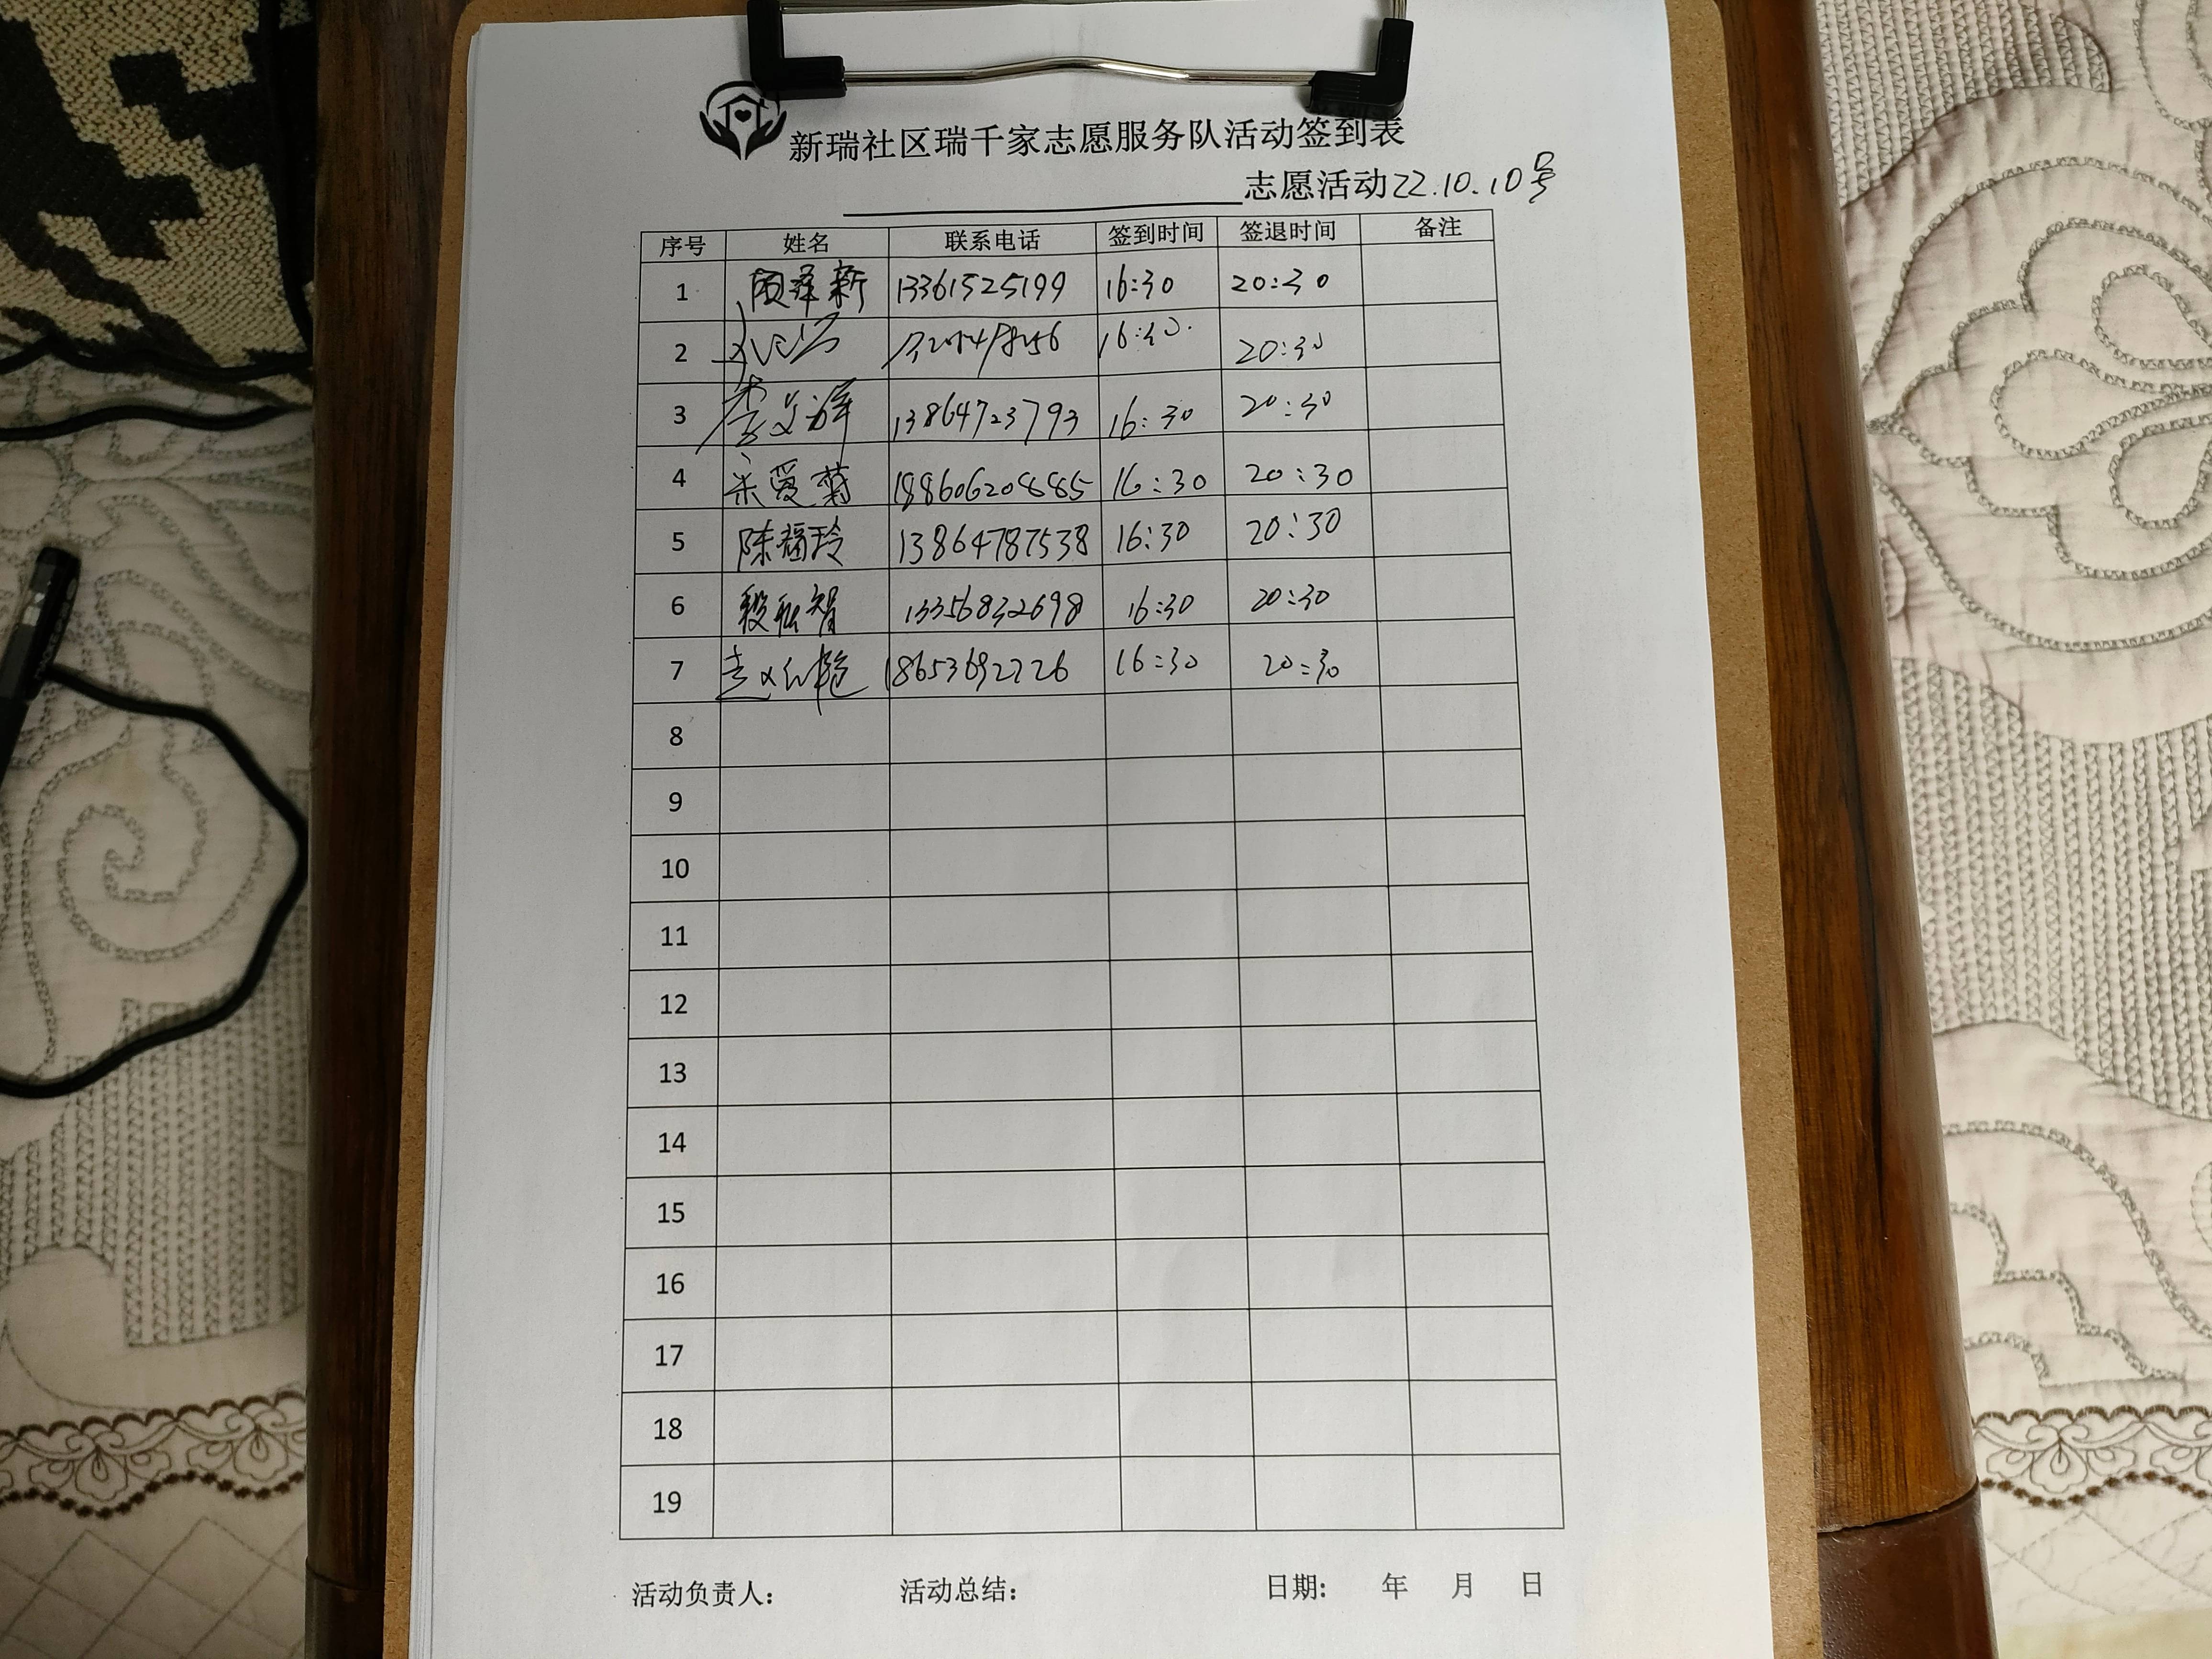 新瑞社区瑞千家志愿服务队活动签到表
志愿活动22.10.10号
序号 姓名 联系电话 签到时间 签退时间 备注
1 13361525199 16:30 20:30
2 20:30
3 13864723793 16:30 20:30
4 宋爱菊 16:30 20:30
5 陈福玲 13864787538 16:30 20:30
6 13356832698 16:30 20:30
7 18653692726 16:30 20:30
8
9
10
11
12
13
14
15
16
17
18
19
活动负责人: 活动总结: 日期: 年 月 日